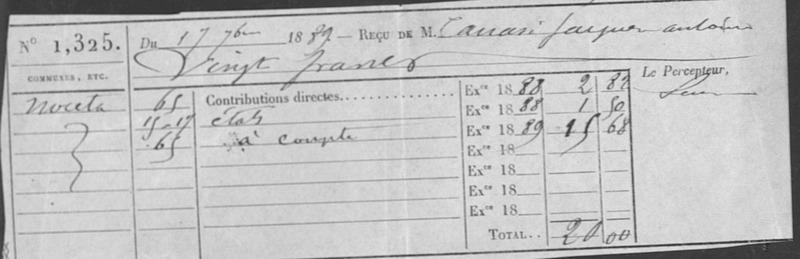 N° 1,325. Du 17 7bre 1889. — REÇU DE M. Jacques antoine
Vingt francs
COMMUNES, ETC. Le Percepteur,
Noceta 65 Contributions directes. Exce 1888 2 82
15-17 états Exce 1888 1 50
65 à compte Exce 1889 15 68
Exce 18
Exce 18
Exce 18
Exce 18
TOTAL.. 20 00